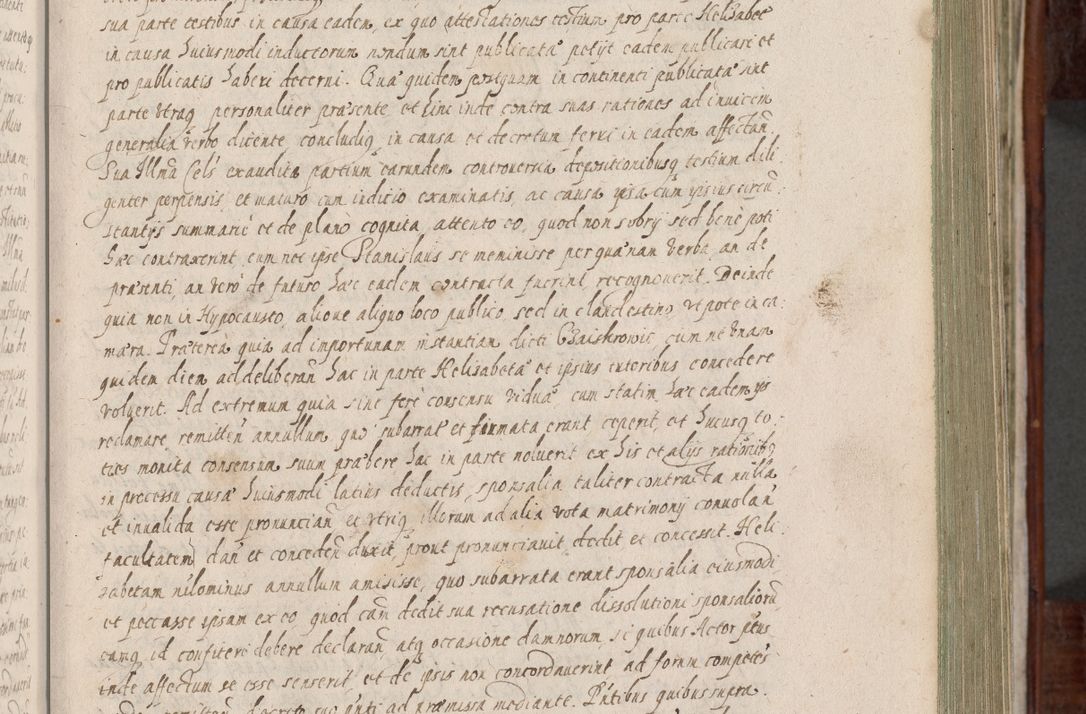 sua parte testibus in causa eadem, ex quo attestationes testium pro parte Helisabet
in causa huiusmodi inductorum nondum sint publicata petijt eadem publicari et
pro publicatis haberi decerni. Qua quidem postquam in continenti publicata sint
parte vtraq personaliter præsente, et hinc inde contra suas rationes ad inuicem
generalia verbo dicente, concludiq in causa et decretum ferri in eadem affectan
Sua Illma Cels exaudita partium earundem controuersia, depositionibusq testium dili:
genter perpensis, et maturo cum iudicio examinatis, ac causa ipsa cum ipsius circu:
stantijs summarie et de plano cognita, attento eo, quod non sobrij sed bene poti
hæc contraxerint, cum nec ipse Stanislaus se meminisse per quænam verba, an de
præsenti, an vero de futuro hæc eadem contracta fuerint, recognouerit. Deinde
quia non in Hypocausto, alioue aliquo loco publico, sed in clandestino vtpote in ca:
mara. Præterea quia ad importunam instantiam dicti Czaiskowic, cum ne vnam
quidem diem ad deliberan hac in parte Helisabeta et ipsius tutoribus concedere
voluerit. Ad extremum quia sine fere consensu vidua, cum statim hæc eadem ijs
reclamare remitten annullum, quo subarrat et firmata erant ceperit, et hucusq to:
ties monita consensum suum præbere hac in parte noluerit ex his et alijs rationib9
in processu causæ huiusmodi latius deductis, sponsalia taliter contracta nulla
et inualida esse pronuncian, et vtriq illorum ad alia vota matrimonij conuolan
facultatem dan et conceden duxit, prout pronunciauit dedit et concessit. Heli:
zabetam nilominus annullum amisisse, quo subarrata erant sponsalia eiusmodi,
et peccasse ipsam ex eo, quod cam dedit sua recusatione dissolutioni sponsalioru,
eamq id confiteri debere declaran, atq occasione damnorum, si quibus Actor
inde affectum se esse senserit, et de ipsis non concordauerint ad forum competes
decreto suo ad præmissa mediante. Pntibus quibus supra.